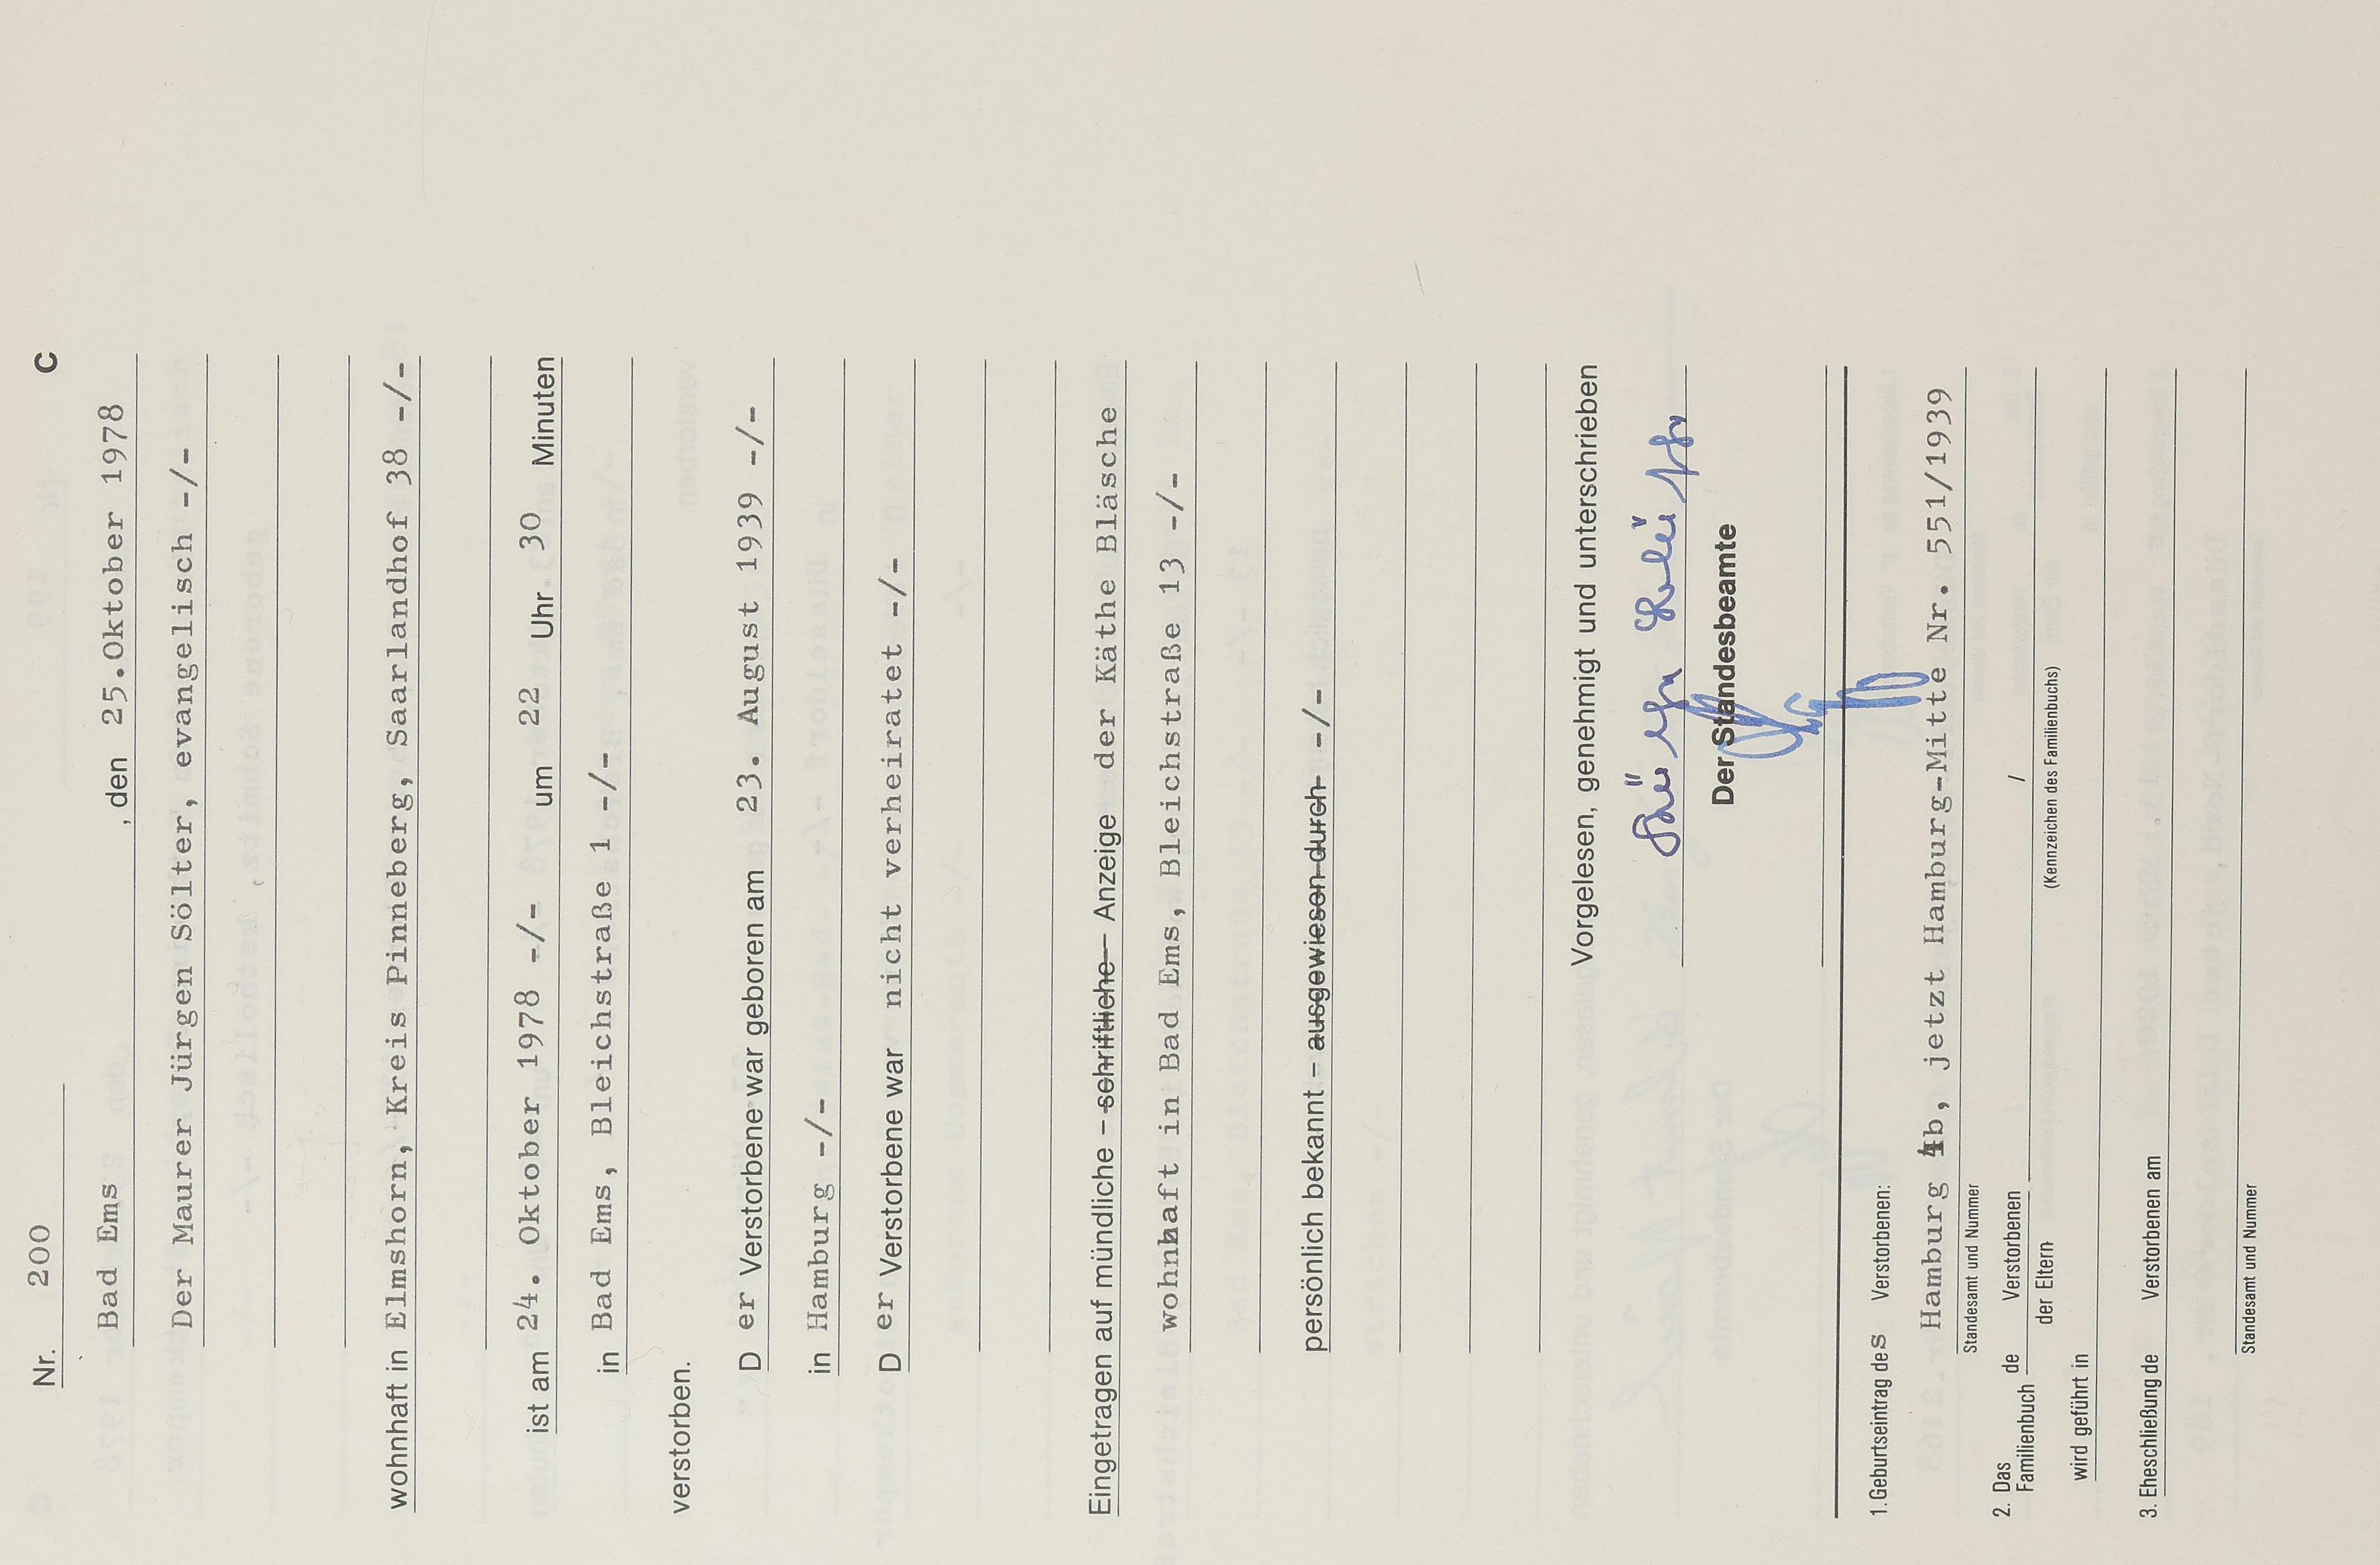 Nr. 200 C
Bad Ems , den 25.Oktober 1978
Der Maurer Jürgen Sölter, evangelisch -/-
wohnhaft in Elmshorn, Kreis Pinneberg, Saarlandhof 38 -/-
ist am 24. Oktober 1978 -/- um 22 Uhr 30 Minuten
in Bad Ems, Bleichstraße 1 -/-
verstorben.
D er Verstorbene war geboren am 23. August 1939 -/-
in Hamburg -/-
D er Verstorbene war nicht verheiratet -/-
Eingetragen auf mündliche – schriftliche – Anzeige der Käthe Bläsche
wohnhaft in Bad Ems, Bleichstraße 13 -/-
persönlich bekannt – ausgewiesen durch -/-
Vorgelesen, genehmigt und unterschrieben
Der Standesbeamte
1. Geburtseintrag des Verstorbenen:
Hamburg 4b, jetzt Hamburg-Mitte Nr. 551/1939
Standesamt und Nummer
2. Das Familienbuch de Verstorbenen /
der Eltern (Kennzeichen des Familienbuchs)
wird geführt in
3. Eheschließung de Verstorbenen am
Standesamt und Nummer